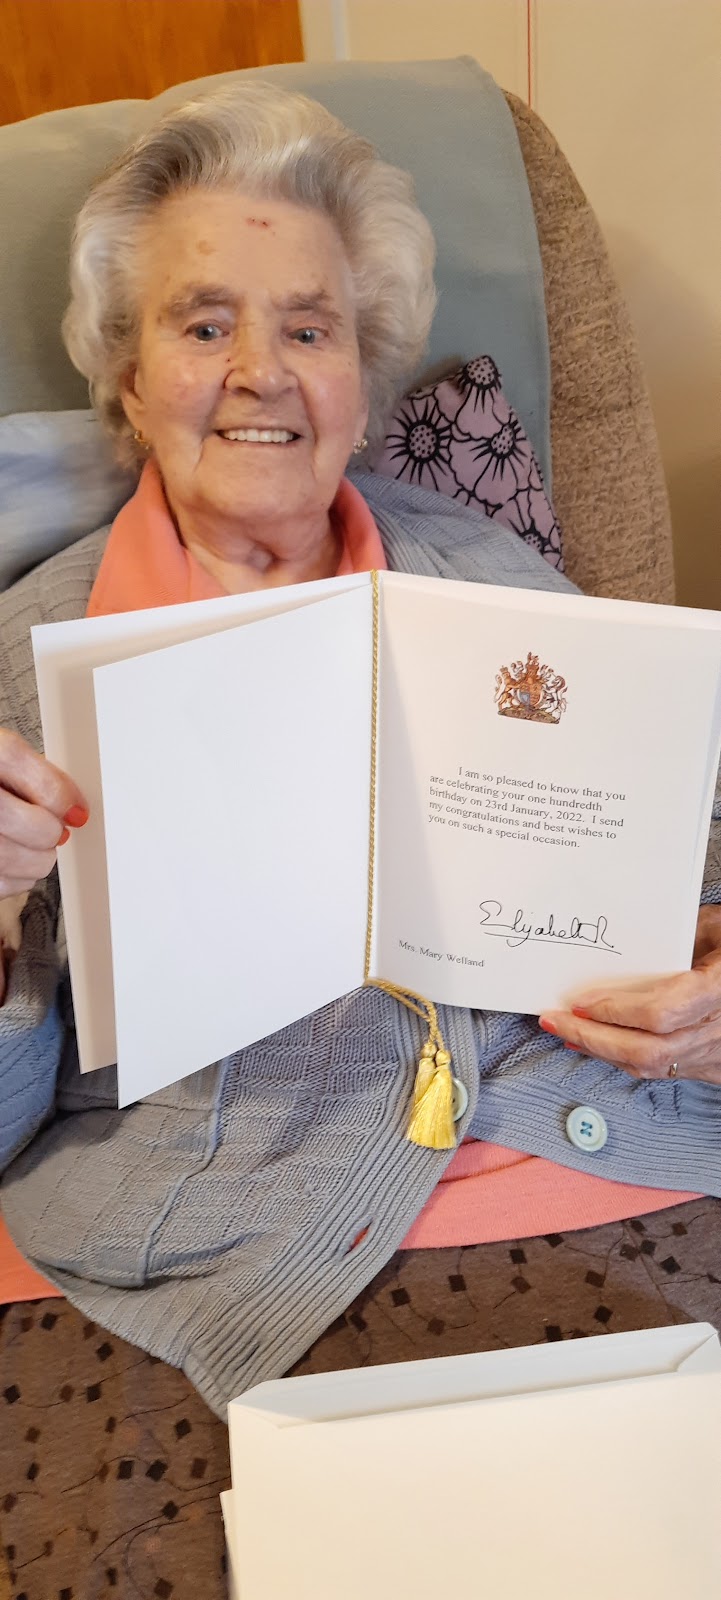 I am so pleased to know that you
are celebrating your one hundredth
birthday on 23rd January, 2022. I send
my congratulations and best wishes to
you on such a special occasion.
Elizabeth R
Mrs. Mary Welland